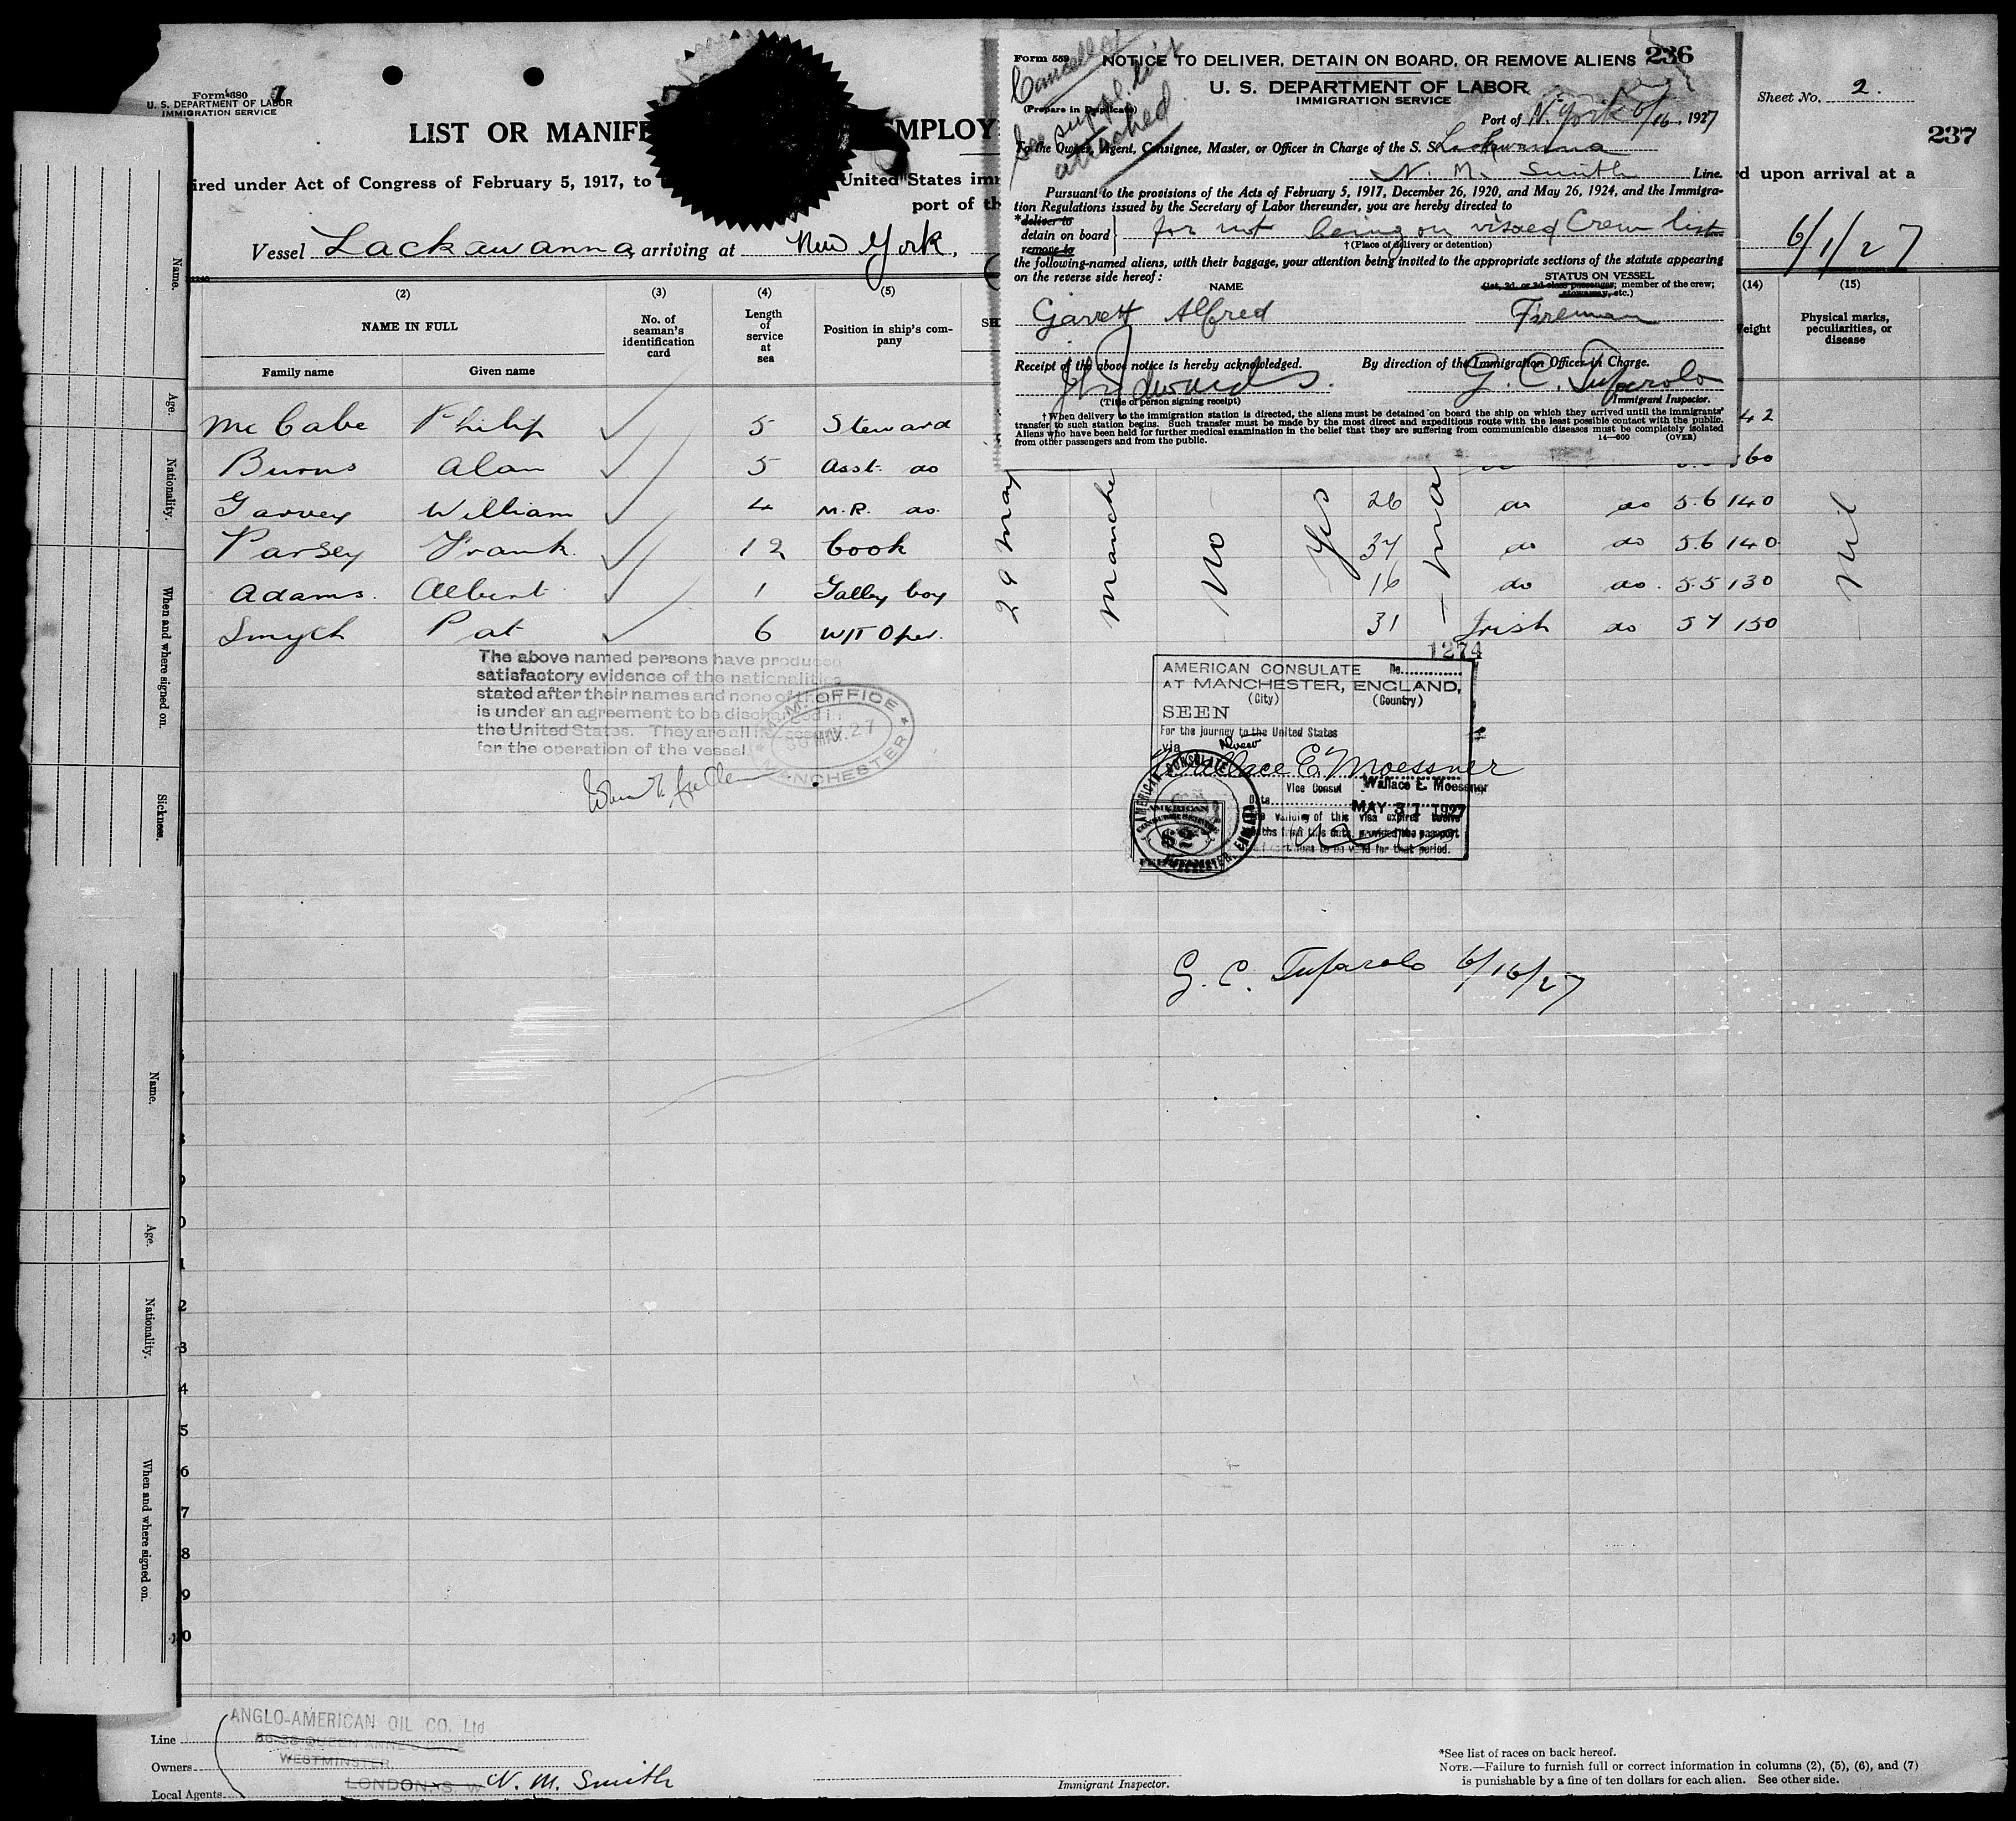 Form 680
U. S. DEPARTMENT OF LABOR
IMMIGRATION SERVICE
LIST OR MANIFE MPLOY
ired under Act of Congress of February 5, 1917, to United States imm d upon arrival at a
port of th
Vessel Lackawanna, arriving at New York, 6/1/27
Sheet No. 2.
237
Form 559 NOTICE TO DELIVER, DETAIN ON BOARD, OR REMOVE ALIENS 236
U. S. DEPARTMENT OF LABOR
IMMIGRATION SERVICE
(Prepare in Duplicate)
Cancelled
See suppl. list
attached
Port of N. York 6/16, 1927
To the Owner, Agent, Consignee, Master, or Officer in Charge of the S. S. Lackawanna
N. M. Smith Line.
Pursuant to the provisions of the Acts of February 5, 1917, December 26, 1920, and May 26, 1924, and the Immigra-
tion Regulations issued by the Secretary of Labor thereunder, you are hereby directed to
*deliver to
detain on board
remove to
for not being on visaed Crew list
†(Place of delivery or detention)
the following-named aliens, with their baggage, your attention being invited to the appropriate sections of the statute appearing
on the reverse side hereof:
NAME
STATUS ON VESSEL
(1st, 2d, or 3d class passenger; member of the crew;
stowaway, etc.)
Garrett Alfred Fireman
Receipt of the above notice is hereby acknowledged. By direction of the Immigration Officer in Charge.
G. C. Tufarolo
(Title of person signing receipt) Immigrant Inspector.
†When delivery to the immigration station is directed, the aliens must be detained on board the ship on which they arrived until the immigrants'
transfer to such station begins. Such transfer must be made by the most direct and expeditious route with the least possible contact with the public.
Aliens who have been held for further medical examination in the belief that they are suffering from communicable diseases must be completely isolated
from other passengers and from the public. 14—660 (OVER)
(2) (3) (4) (5) (14) (15)
NAME IN FULL
No. of seaman's identification card
Length of service at sea
Position in ship's com-
pany
SH
eight
Physical marks, peculiarities, or disease
Family name Given name
McCabe Philip 5 Steward 42
Burns Alan 5 Asst. do 160
Garvey William 4 M.R. do. 26 do do 5.6 140
Parsey Frank. 12 Cook 37 do do 5.6 140
Adams. Albert 1 Galley boy 16 do do. 5.5 130
Smyth Pat 6 W/T Oper. 31 Irish do 5 7 150
29 May
Manche
No
Yes
Nil
The above named persons have produced
satisfactory evidence of the nationalities
stated after their names and none of them
is under an agreement to be discharged i
the United States. They are all necessary
for the operation of the vessel
M.M. OFFICE
30 MAY. 27
MANCHESTER
1274
AMERICAN CONSULATE No.
AT MANCHESTER, ENGLAND,
(City) (Country)
SEEN
For the journey to the United States
via
Wallace E. Moessner
Wallace E. Moessner
Vice Consul
Date MAY 31 1927
The validity of this visa expires twelve
months from this date, provided the passport
continues to be valid for that period.
AMERICAN CONSULATE
MANCHESTER, ENGLAND
AMERICAN
CONSULAR SERVICE
$2
G. C. Tufarolo 6/16/27
Name.
Age.
Nationality.
When and where signed on.
Sickness.
Name.
Age.
Nationality.
When and where signed on.
0
1
2
3
4
5
6
7
8
9
0
Line ANGLO-AMERICAN OIL CO. Ltd
36-38 QUEEN ANNE'S GATE
WESTMINSTER
Owners
LONDON S. W. N. M. Smith
Local Agents
Immigrant Inspector.
*See list of races on back hereof.
NOTE.—Failure to furnish full or correct information in columns (2), (5), (6), and (7)
is punishable by a fine of ten dollars for each alien. See other side.